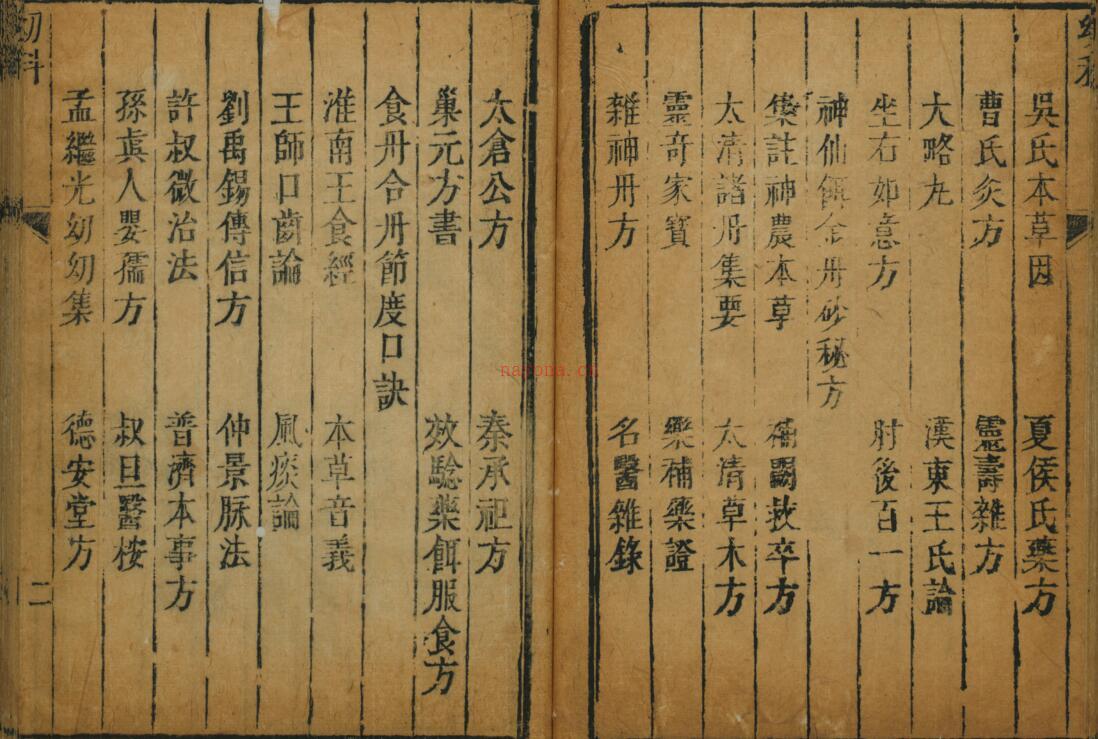 吳氏本草因　夏侯氏藥方
曹氏灸方　靈壽雜方
大略丸　漢東王氏論
坐右如意方　肘後百一方
神仙餌金丹砂秘方
集註神農本草　備闕救卒方
太清諸丹集要　太清草木方
靈奇家寳　藥補藥證
雜神丹方　名醫雜錄
太倉公方　秦承祖方
巢元方書　效驗藥餌服食方
食丹合丹節度口訣
淮南王食經　本草音義
王師口齒論　風痰論
劉禹錫傳信方　仲景脉法
許叔微治法　普濟本事方
孫真人嬰孺方　叔旦醫桉
孟繼光幼幼集　德安堂方
幼科
二